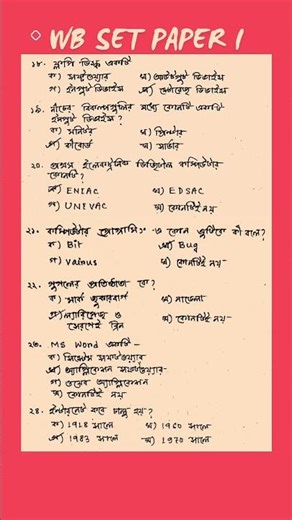 WB SET PAPER 1
১৮. ফ্লপি ডিস্ক একটি
ক) সফ্টওয়্যার খ) আউটপুট ডিভাইস
গ) ইনপুট ডিভাইস ঘ) স্টোরেজ ডিভাইস
১৯. নীচের বিকল্পগুলির মধ্যে কোনটি একটি
ইনপুট ডিভাইস?
ক) মনিটর খ) প্রিন্টার
গ) কীবোর্ড ঘ) সার্ভার
২০. প্রথম ইলেকট্রনিক ডিজিটাল কম্পিউটার
কোনটি?
ক) ENIAC খ) EDSAC
গ) UNEVAC ঘ) কোনটিই নয়
২১. কম্পিউটার প্রোগ্রামিং ও কোন ত্রুটিকে কী বলে?
ক) Bit খ) Bug
গ) Vairus ঘ) কোনটিই নয়
২২. গুগলের প্রতিষ্ঠাতা কে?
ক) মার্ক জুকারবার্গ খ) নাডেলা
গ) ল্যারিপেজ ও ঘ) কোনটিই নয়
সেরগেই ব্রিন
২৩. MS Word একটি -
ক) সিস্টেম সফটওয়্যার
খ) অ্যাপ্লিকেশন সফটওয়্যার
গ) ওয়েব অ্যাপ্লিকেশন
ঘ) কোনটিই নয়
২৪. ইন্টারনেট কবে চালু হয়?
ক) 1918 সালে খ) 1960 সালে
গ) 1983 সালে ঘ) 1970 সালে